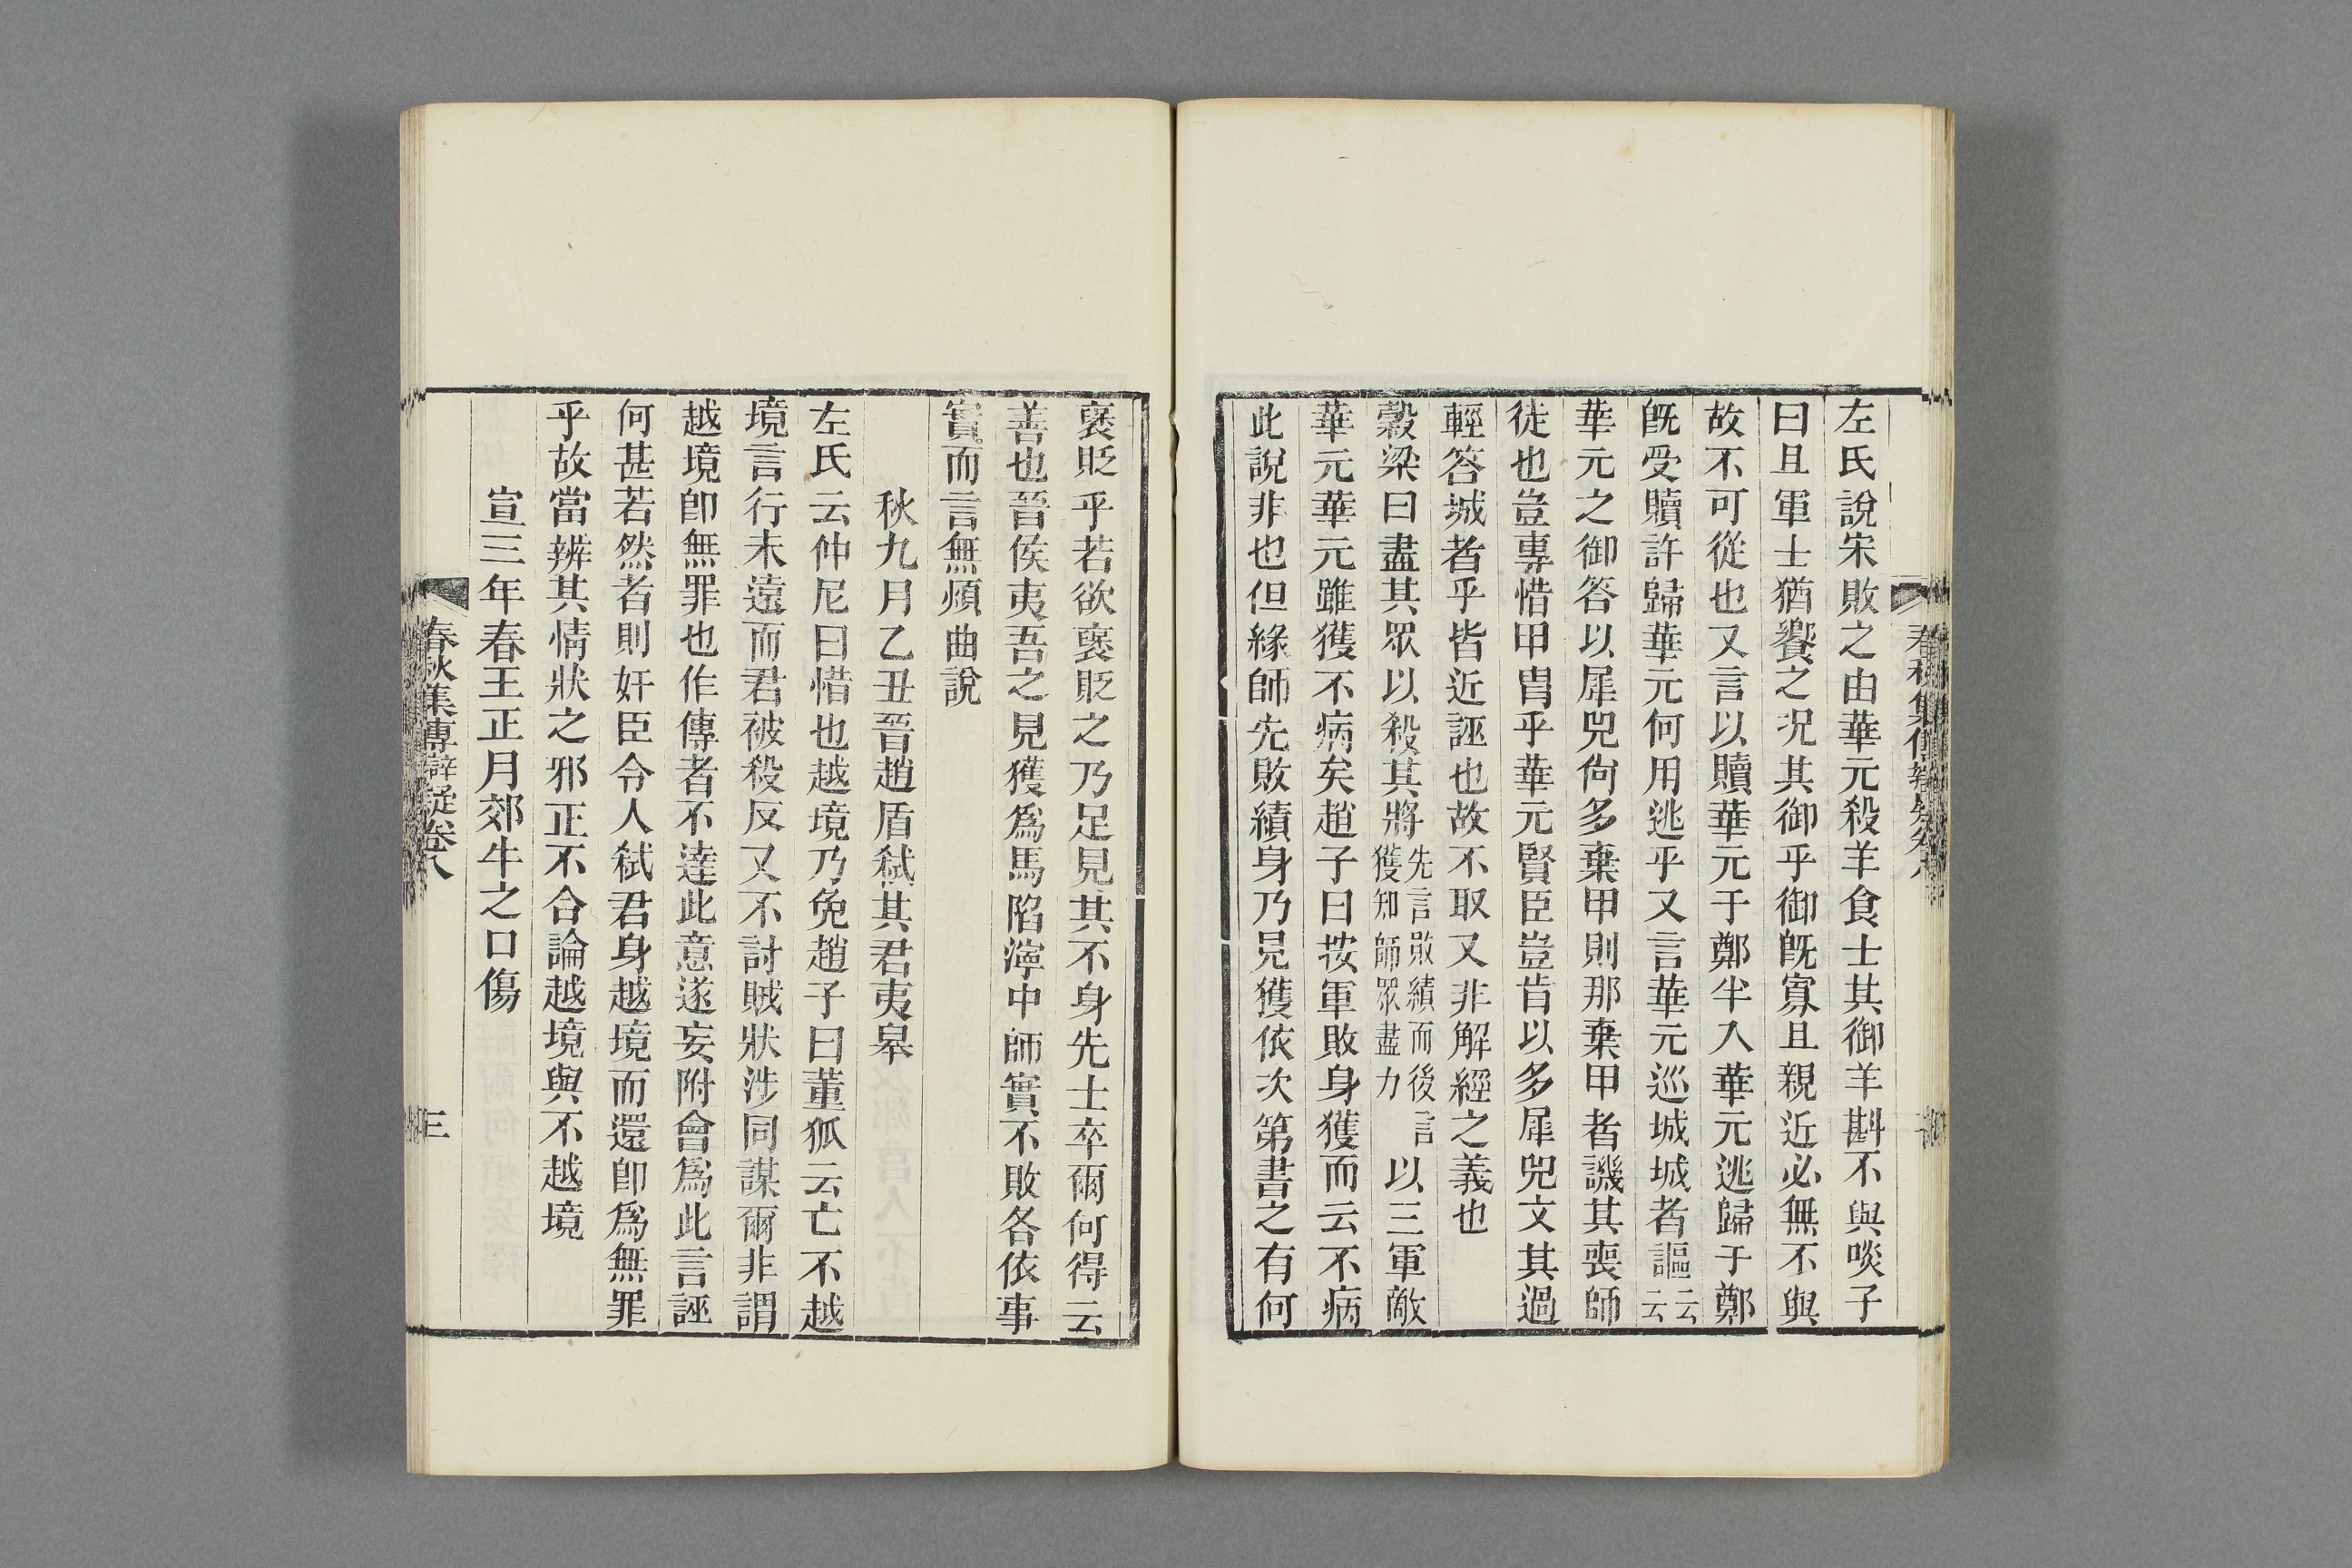 左氏說宋敗之由華元殺羊食士其御羊斟不與啖子
曰且軍士猶饗之况其御乎御旣寡且親近必無不與
故不可從也又言以贖華元于鄭半入華元逃歸于鄭
旣受贖許歸華元何用逃乎又言華元巡城城者謳云云
華元之御答以犀兕尙多棄甲則那棄甲者譏其喪師
徒也豈專惜甲冑乎華元賢臣豈肯以多犀兕文其過
輕答城者乎皆近誣也故不取又非解經之義也
穀梁曰盡其眾以殺其將先言敗績而後言獲知師眾盡力以三軍敵
華元華元雖獲不病矣趙子曰按軍敗身獲而云不病
此說非也但緣師先敗績身乃見獲依次第書之有何
褒貶乎若欲褒貶之乃足見其不身先士卒爾何得云
善也晉侯夷吾之見獲爲馬陷濘中師實不敗各依事
實而言無煩曲說
秋九月乙丑晉趙盾弒其君夷皋
左氏云仲尼曰惜也越境乃免趙子曰董狐云亡不越
境言行未遠而君被殺反又不討賊狀涉同謀爾非謂
越境卽無罪也作傳者不達此意遂妄附會爲此言誣
何甚若然者則奸臣令人弒君身越境而還卽爲無罪
乎故當辨其情狀之邪正不合論越境與不越境
宣三年春王正月郊牛之口傷
春秋集傳辯疑卷八
三